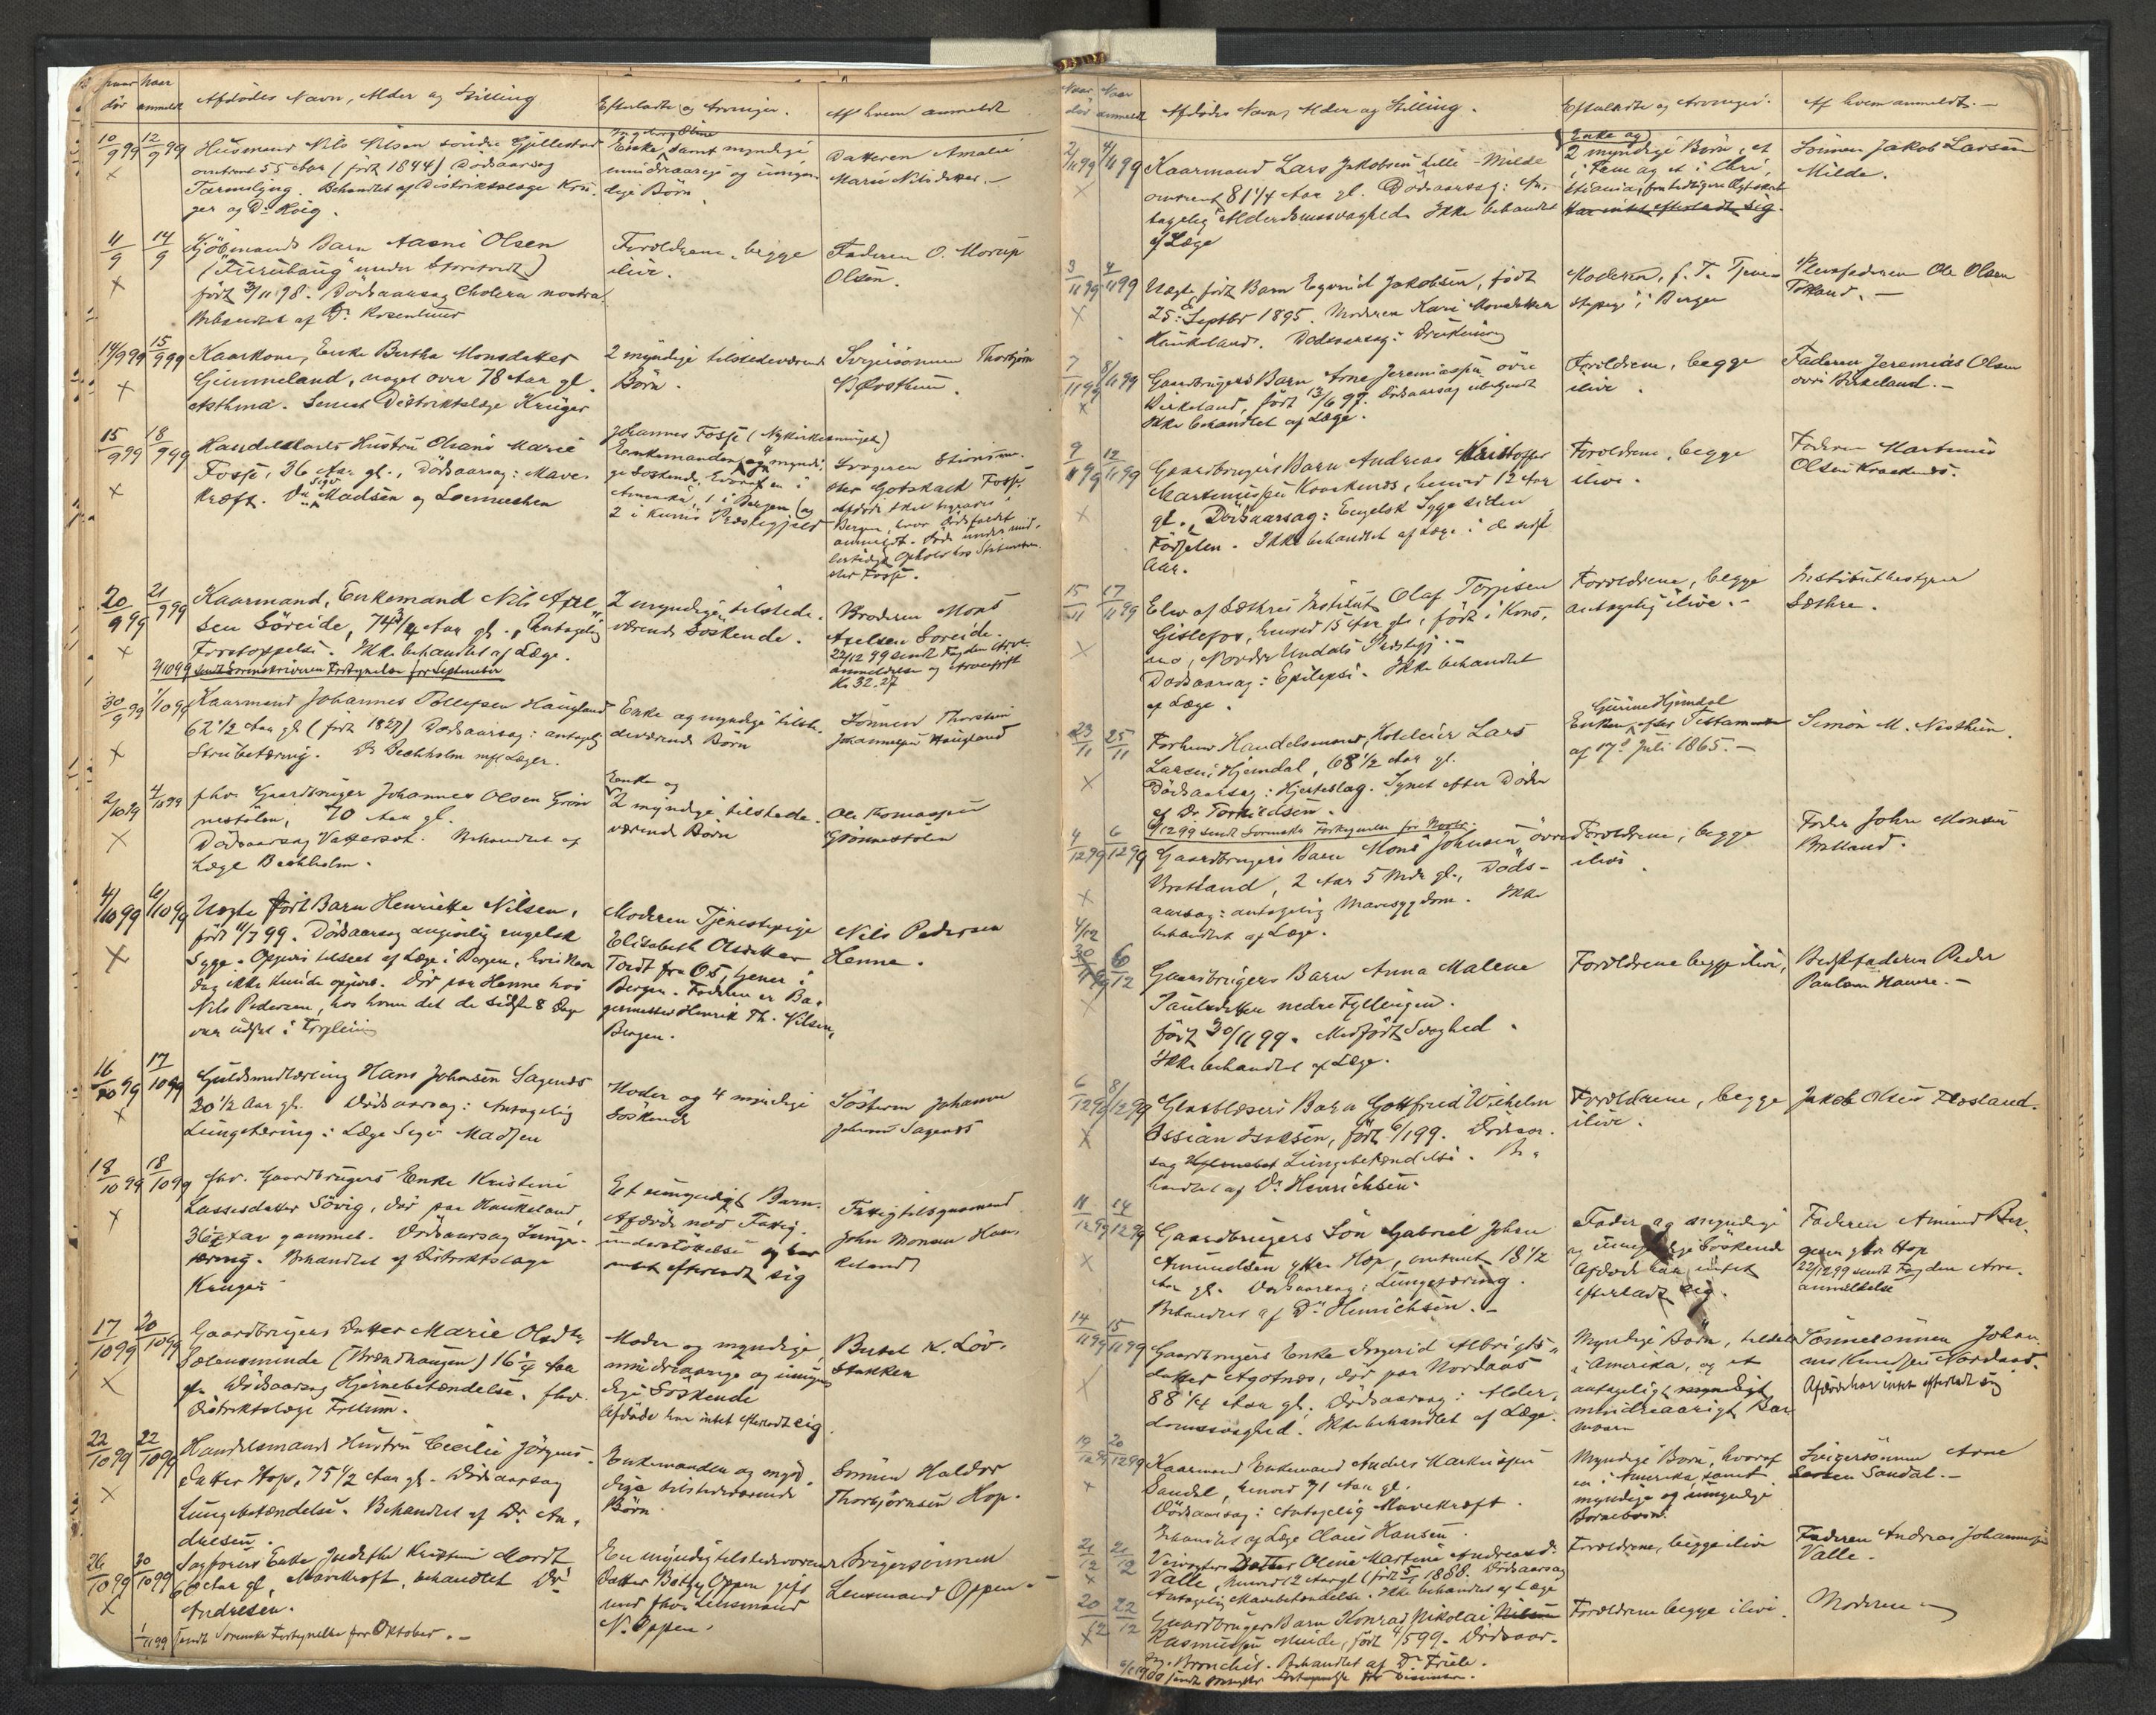 Naar dör
Naar anmeldt
Afdödes Navn, Alder og Stilling
Efterladte og Arvinger.
Af hvem anmeldt
10/9 99 12/9 99
Husmand Nils Nilsen söndre Gjellestad
omtrent 55 Aar (födt 1844) Dödsaarsag
Tarmslyng. Behandlet af Distriktslæge Krü-
ger og Dr
Ingeborg Oline
Enke, samt myndige
mindreaarige og umyn-
dige Börn
Datteren Amalie
Marie Nilsdatter.
11/9 14/9
Kjöbmands Barn Aasni Olsen
født 3/11 98. Dödsaarsag Cholera nostra
Behandlet af Dr Rosenlund
Forældrene, begge
ilive.
Faderen O. Morup
Olsen.
14/9 99 15/9 99
Kaarkone, Enke Bertha Monsdatter
Gimmeland, noget over 78 Aar gl.
Asthma. Senest Distriktslæge Krüger
2 myndige tilstedeværende
Börn.
Svigersönnen Thorbjørn
15/9 99 18/9 99
Handelskarls Hustru Oliane Marie
Fosse, 36 Aar gl., Dödsaarsag: Mave-
kræft. Dr Madsen og Loennechen
Johannes Fosse (Nykirkealmenning)
Enkemanden og 4 myndi-
ge Söskende, hvoraf en i
Amerika, 1 i Bergen (og
2 i Kinns Præstegjeld
Svogeren Stirinn-
ster Gotskalk Fosse.
Afdöde skal begraves i
Bergen, hvor Dödsfaldet
anmeldt. Döde under mid-
lertidigt Ophold hos
ster Fosse.
20/9 99 21/9 99
Kaarmand, Enkemand Nils Axel-
sen Söreide, 74 3/4 Aar gl., Antagelig
Forstoppelse. Ikke behandlet af Læge.
2/10 99 sendt Sorenskriveren Fortegnelse for September
2 myndige, tilstede-
værende Söskende.
Broderen Mons
Axelsen Söreide.
22/12 99 sendt Fogden Arve-
anmeldelse og Arveafgift
Kr 32.27
30/9 99 1/10 99
Kaarmand Johannes Tollefsen Haugland
62 1/2 Aar gl (födt 1837) Dödsaarsag: antagelig
Strubetæring. Dr Bechholm mfl Læger.
Enke og myndige tilste-
deværende Börn
Sönnen Thorstein
Johannesen Haugland
2/10 99 4/10 99
fhv. Gaardbruger Johannes Olsen Grön
nestölen, 70 Aar gl.
Dödsaarsag Vattersot. Behandlet af
Læge Bechholm.
Enke og
2 myndige tilstede-
værende Börn
Ole Thomassen
Grönnestölen
4/10 99 6/10 99
Uægte födt Barn Henriette Nilsen,
född 11/7 99. Dödsaarsag angivelig engelsk
Syge. Opgives tilseet af Læge i Bergen, hvis Navn
dog ikke kunde opgives. Dör paa Henne hos
Nils Pedersen, hos hvem det de sidste 8 Dage
var udsat i Forpleining
Moderen Tjenestepige
Elisabeth Olsdatter
Tordt fra Os, tjener i
Bergen. Faderen er Ba-
germester Henrik Th. Nilsen,
Bergen.
Nils Pedersen
Henne.
16/10 99 17/10 99
Guldsmedlærling Hans Johnsen Sagenes
20 1/2 Aar gl. Dödsaarsag: Antagelig
Lungetæring: Læge Seyv Madsen
Moder og 4 myndige
Söskende
Söstern Johanne
Johnsen Sagenes
18/10 99 18/10 99
fhv. Gaardbrugers Enke Kristine
Lassesdatter Sövig, dör paa Haukeland,
36 1/2 Aar gammel. Dödsaarsag Lunge-
tæring. Behandlet af Distriktslæge
Krüger
Et umyndigt Barn.
Afdöde nöd Fattig-
understöttelse og har
intet efterladt sig
Fattigtilsynsmand
John Monsen Hau-
keland
17/10 99 20/10 99
Gaardbrugers Datter Marie Olsdtr
Solensminde (Thrandhaugen) 16 1/4 Aar
gl. Dödsaarsag Hjernebetændelse. fhv.
Distriktslæge
Moder og myndige
mindreaarige og umyn-
dige Söskende
Afdöde har intet efterladt sig
K. Löv-
stakken
22/10 99 22/10 99
Handelsmands Hustru Cecilie Jörgens-
datter Hop, 75 1/2 Aar gl. Dödsaarsag
Lungebetændelse. Behandlet af Dr. An-
dresen.
Enkemanden og myn-
dige tilstedeværende
Börn.
Sönnen Haldor
Thorbjörnsen Hop.
26/10 99 30/10 99
Sagförers Enke Kristine Mordt
Aar gl, Mavekræft, behandlet Dr
Andresen.
En myndig tilstedeværende
datter Betzy Oppen gift
med fhv. Lensmand
N. Oppen.
Svigersönnen
Lensmand Oppen.
1/11 99 sendt Sorenskr Fortegnelse for October.
Naar dör
Naar anmeldt
Afdödes Navn, Alder og Stilling.
Efterladte og Arvinger.
Af hvem anmeldt.
2/11 99 4/11 99
Kaarmand Lars Jakobsen Lille-Milde
omtrent 81 1/4 Aar gl. Dödsaarsag: An-
tagelig Alderdomssvaghed. Ikke behandlet
af Læge
Enke og
2 myndige Börn, et
i Fane og et i Chri-
stiania, fra tidligere Ægteskab
Har intet efterladt sig.
Sönnen Jakob Larsen
Milde.
3/11 99 4/11 99
Uægte födt Barn Jakobsen, födt
25de Septbr 1895. Moderen Kari Monsdatter
Haukeland. Dödsaarsag: Drukning
Moderen, f. T. Tjene-
stepige i Bergen
Pleiefaderen Ole Olsen
7/11 99 8/11 99
Gaardbrugers Barn Arne Jeremiassen övre
Birkeland, födt 13/6 97. Dödsaarsag ubekjendt
Ikke behandlet af Læge.
Forældrene, begge
ilive.
Faderen Jeremias Olsen
övre Birkeland.
9/11 99 12/11 99
Gaardbrugers Barn Andreas Kristoffer
Martinussen Kraakenes, henved 12 Aar
gl., Dödsaarsag: Engelsk Syge siden
Födselen. Ikke behandlet af Læge i de sidste
Aar.
Forældrene, begge
ilive.
Faderen Martinus
Olsen Kraakenes.
15/11 17/11 99
Elev af Sæthres Institut, Olaf Torjusen
Gislefos, henved 15 Aar gl., födt i Kons-
mo, Nordre Undals Præstegj.
Dödsaarsag: Epilepsi. Ikke behandlet
af Læge.
Forældrene, begge
antagelig ilive.
Institutbestyrer
Sæthre.
23/11 25/11
Forhenv Handelsmand, Hoteleier Lars
Larsen Hjemdal, 68 1/2 Aar gl.
Dödsaarsag: Hjerteslag. Synet efter Döden
af Dr. Torkildsen.
Gurine Hjemdal
Enken, efter Testamente
af 17de Juli 1865.
Simon M. Nesthun.
1/12 99 sendt Sorenskr Fortegnelse for Novbr.
4/12 99 6/12 99
Gaardbrugers Barn Mons Johnsen övre
Bratland, 2 Aar 5 Mdr gl., Döds-
aarsag: antagelig Mavesygdom. Ikke
behandlet af Læge.
Forældrene, begge
ilive
Fader John Monsen
Bratland.
4/12
30/11 99 6/12
Gaardbrugers Barn Anna Malene
Paulsdatter nedre Fyllingen.
födt 30/11 99. Medfödt Svaghed.
Ikke behandlet af Læge.
Forældrene begge ilive,
Bedstefaderen Peder
Paulsen
6/12 99 8/12 99
Glasblæsers Barn Gottfried Wilhelm
Ossian Isaksen, födt 6/1 99. Dödsaar-
sag Lungebetændelse. Be-
handlet af Dr. Henrichsen.
Forældrene, begge
ilive.
Jakob Olsen Flesland.
11/12 99 14/12 99
Gaardbrugers Sön Gabriel Johan
Amundsen ytre Hop, omtrent 18 1/2
Aar gl. Dödsaarsag: Lungetæring.
Behandlet af Dr. Henrichsen.
Fader og myndige
og umyndige Söskende
Afdöde har intet
efterladt sig.
Faderen Amund Ber-
gesen ytre Hop
22/12 99 sendt Fogden Arve-
anmeldelse
14/11 99 15/11 99
Gaardbrugers Enke Ingerid Albrigts-
datter Agotnes, dör paa Nordaas
88 1/4 Aar gl. Dödsaarsag: Alder-
domssvaghed. Ikke behandlet af Læge.
Myndige Börn, tildels
i Amerika, og et
antageligt myndigt
mindreaarigt Bar-
nebarn
Sönnesönnen Johan-
nes Knudsen Nordaas.
Afdöde har intet efterladt sig
19/12 99 20/12 99
Kaarmand Enkemand Anders Markussen
Sandal, henved 71 Aar gl.
Dödsaarsag: Antagelig Mavekræft.
Behandlet af Læge Claus Hansen.
Myndige Börn, hvoraf
en i Amerika, samt
myndige og umyndige
Börnebörn.
Svigersönnen Arne
Sandal.
21/12 21/12
Datter Oline Martine Andreasd.
Valle, henved 12 Aar gl (födt 5/1 1888. Dödsaarsag
Antagelig Mavebetændelse. Ikke behandlet af Læge
Forældrene, begge ilive
Faderen Andreas Johannessen
Valle.
20/12 22/12
Gaardbrugers Barn Konrad Nikolai Nilsen
Rasmussen Minde, födt 4/5 99. Dödsaar-
sag. Bronchit. Behandlet af Dr. Friele.
Forældrene begge ilive.
Moderen
1900 sendt Sorenskr Fortegnelse for Desember.